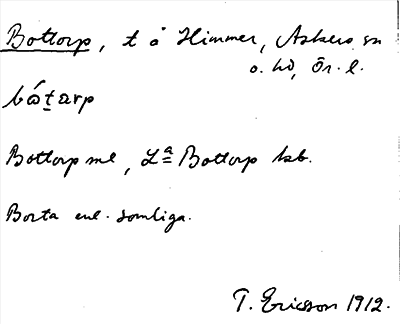 Bottorp, t å Himmer, Askers sn
o. hd, Ör. l.
bó̀ṯarp
Bottorp ml, Lᵃ Bottorp lsb.
Borta enl. somliga.
T. Ericsson 1912.